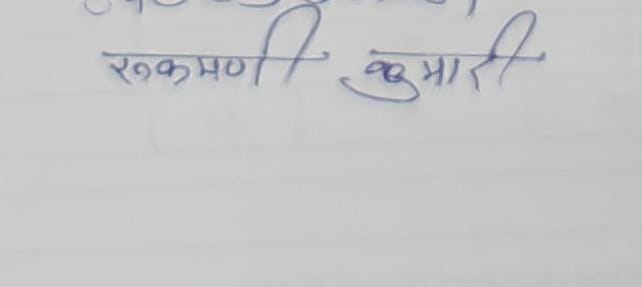 रुकमणी कुमारी